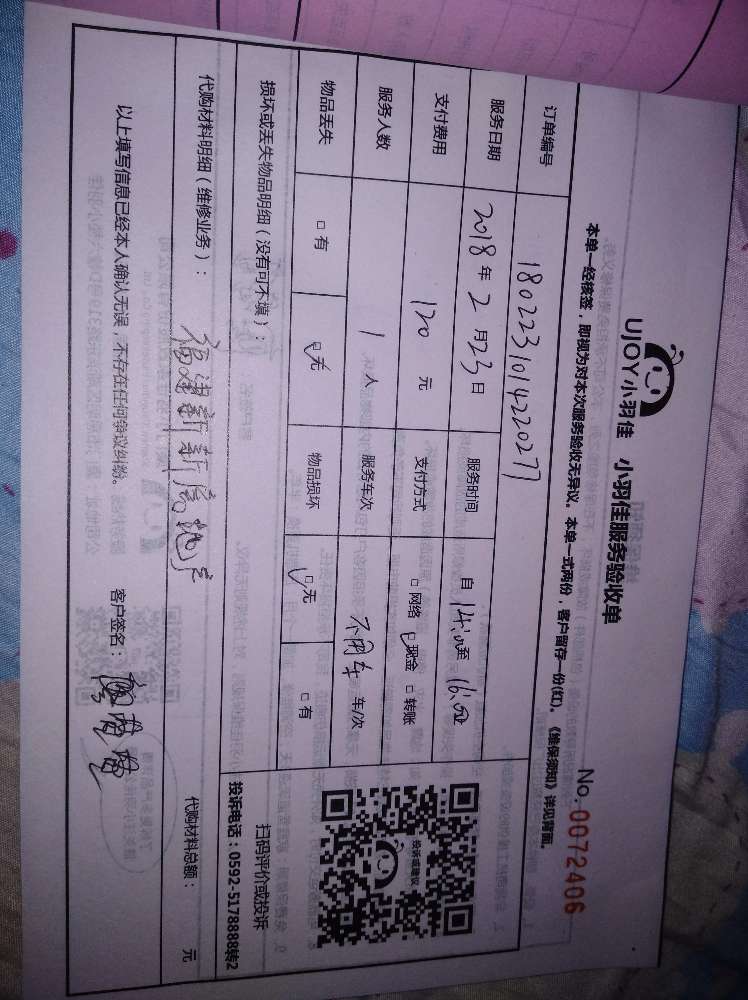 UJOY小羽佳 小羽佳服务验收单
No. 0072406
本单一经核签，即视为对本次服务验收无异议。本单一式两份，客户留存一份(红)。《维保须知》详见背面。
订单编号 1802231014220277
服务日期 2018年2月23日 服务时间 自14:00至16:00止
支付费用 120元 支付方式 □网络 ☑现金 □转账
服务人数 1人 服务车次 不用车 车/次
物品丢失 □有 ☑无 物品损坏 ☑无 □有
投诉或建议
扫码评价或投诉
投诉电话：0592-5178888转2
损坏或丢失物品明细（没有可不填）：
代购材料明细（维修业务）： 代购材料总额： 元
福建新新房地产
以上填写信息已经本人确认无误，不存在任何争议纠纷。 客户签名：